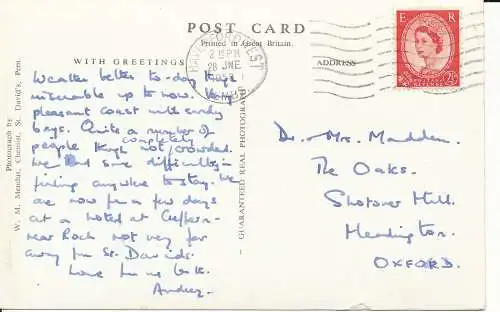 POST CARD
Printed in Great Britain.
WITH GREETINGS
ADDRESS
HAVERFORDWEST
2 15 PM
28 JNE
E R
POSTAGE
REVENUE
2½D
Weather better to-day though
miserable up to now. Very
pleasant coast with sandy
bays. Quite a number of
people though not completely crowded.
We had some difficulty in
finding anywhere to stay. We
are now for a few days
at a hotel at
near Roch not very far
away from St. Davids.
Love from us both.
Audrey
Dr. & Mrs. Madden
The Oaks.
Shotover Hill.
Headington.
OXFORD.
Photograph by
W. M. Mendus, Chemist, St. David's, Pem.
GUARANTEED REAL PHOTOGRAPH